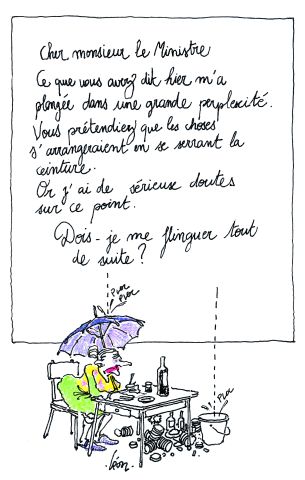 Cher monsieur le Ministre
Ce que vous avez dit hier m'a
plongée dans une grande perplexité.
Vous prétendiez que les choses
s'arrangeraient en se serrant la
ceinture.
Or j'ai de sérieux doutes
sur ce point.
Dois-je me flinguer tout
de suite?
Ploc
Ploc
Ploc